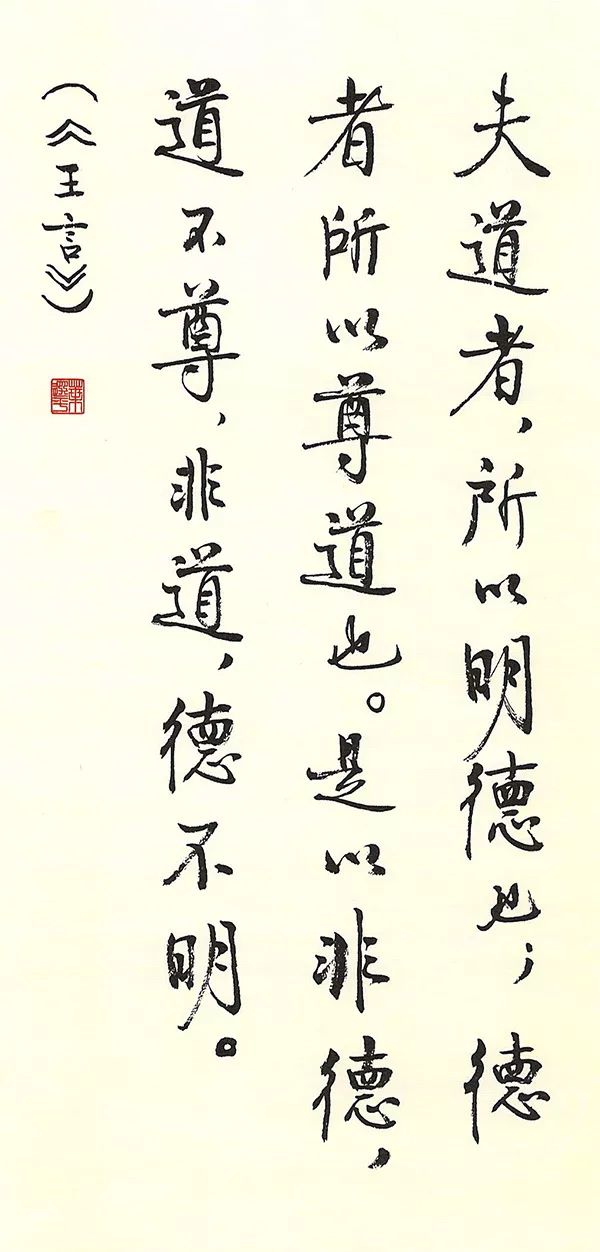 夫道者，所以明德也；德
者所以尊道也。是以非德，
道不尊，非道，德不明。
（《王言》）